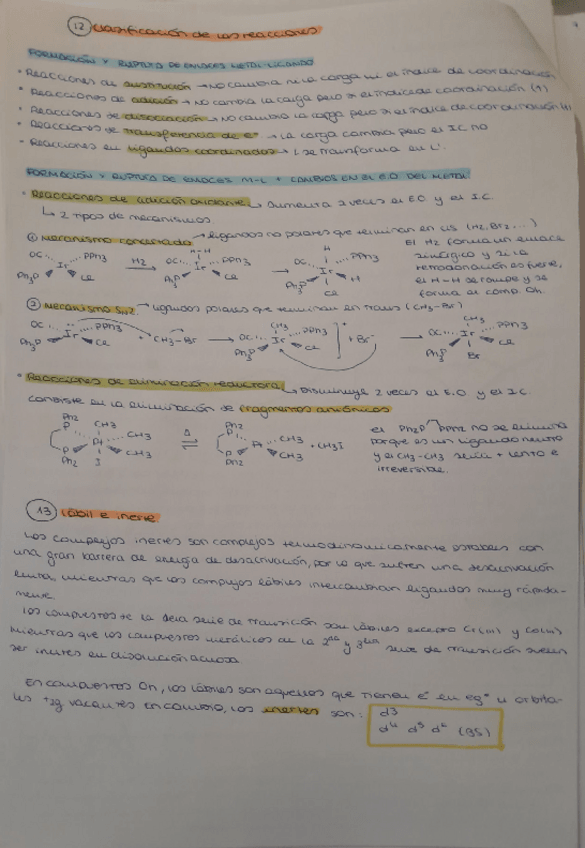 12 Clasificación de las reacciones
FORMACIÓN Y RUPTURA DE ENLACES METAL-LIGANDO
• Reacciones de sustitución → No cambia ni la carga ni el índice de coordinación
• Reacciones de adición → No cambia la carga pero si el índice de coordinación (↑)
• Reacciones de disociación → No cambia la carga pero si el índice de coordinación
• Reacciones de transferencia de e⁻ → La carga cambia pero el I.C. no
• Reacciones en ligandos coordinados → L se transforma en L'.
FORMACIÓN Y RUPTURA DE ENLACES M-L + CAMBIOS EN EL E.O DEL METAL
• Reacciones de adición oxidante ↳ Aumenta 2 veces el E.O y el I.C.
↳ 2 tipos de mecanismos.
① Mecanismo concertado → ligandos no polares que terminan en cis (H2, Br2, ...)
El H2 forma un enlace
sinérgico y si la
retrodonación es fuerte,
el H-H se rompe y se
forma el comp. Oh.
OC PPh3 Ph3P Ir Cl H2 → OC H-H PPh3 Ph3P Ir Cl → OC H PPh3 Ph3P Ir H Cl
② Mecanismo SN2 → ligandos polares que terminan en trans (CH3-Br)
OC PPh3 Ph3P Ir Cl + CH3-Br → OC CH3 PPh3 Ph3P Ir Cl + + Br⁻ → OC CH3 PPh3 Ph3P Ir Cl Br
• Reacciones de eliminación reductora ↳ Disminuye 2 veces el E.O y el I.C.
consiste en la eliminación de fragmentos aniónicos
Ph2 P CH3 Pt CH3 CH3 P Ph2 I Δ ⇌ Ph2 P Pt CH3 CH3 P Ph2 + CH3I
El Ph2P PPh2 no se elimina
porque es un ligando neutro
y el CH3-CH3 sería + lento e
irreversible.
13 Lábil e inerte
Los complejos inertes son complejos termodinámicamente estables con
una gran barrera de energía de desactivación, por lo que sufren una desactivación
lenta, mientras que los complejos lábiles intercambian ligandos muy rápida-
mente.
Los compuestos de la 1era serie de transición son lábiles excepto Cr(III) y Co(III)
mientras que los compuestos metálicos de la 2da y 3era serie de transición suelen
ser inertes en disolución acuosa.
En compuestos Oh, los lábiles son aquellos que tienen e⁻ en eg* u orbita-
les t2g vacantes. En cambio, los inertes son: d3
d4 d5 d6 (BS)